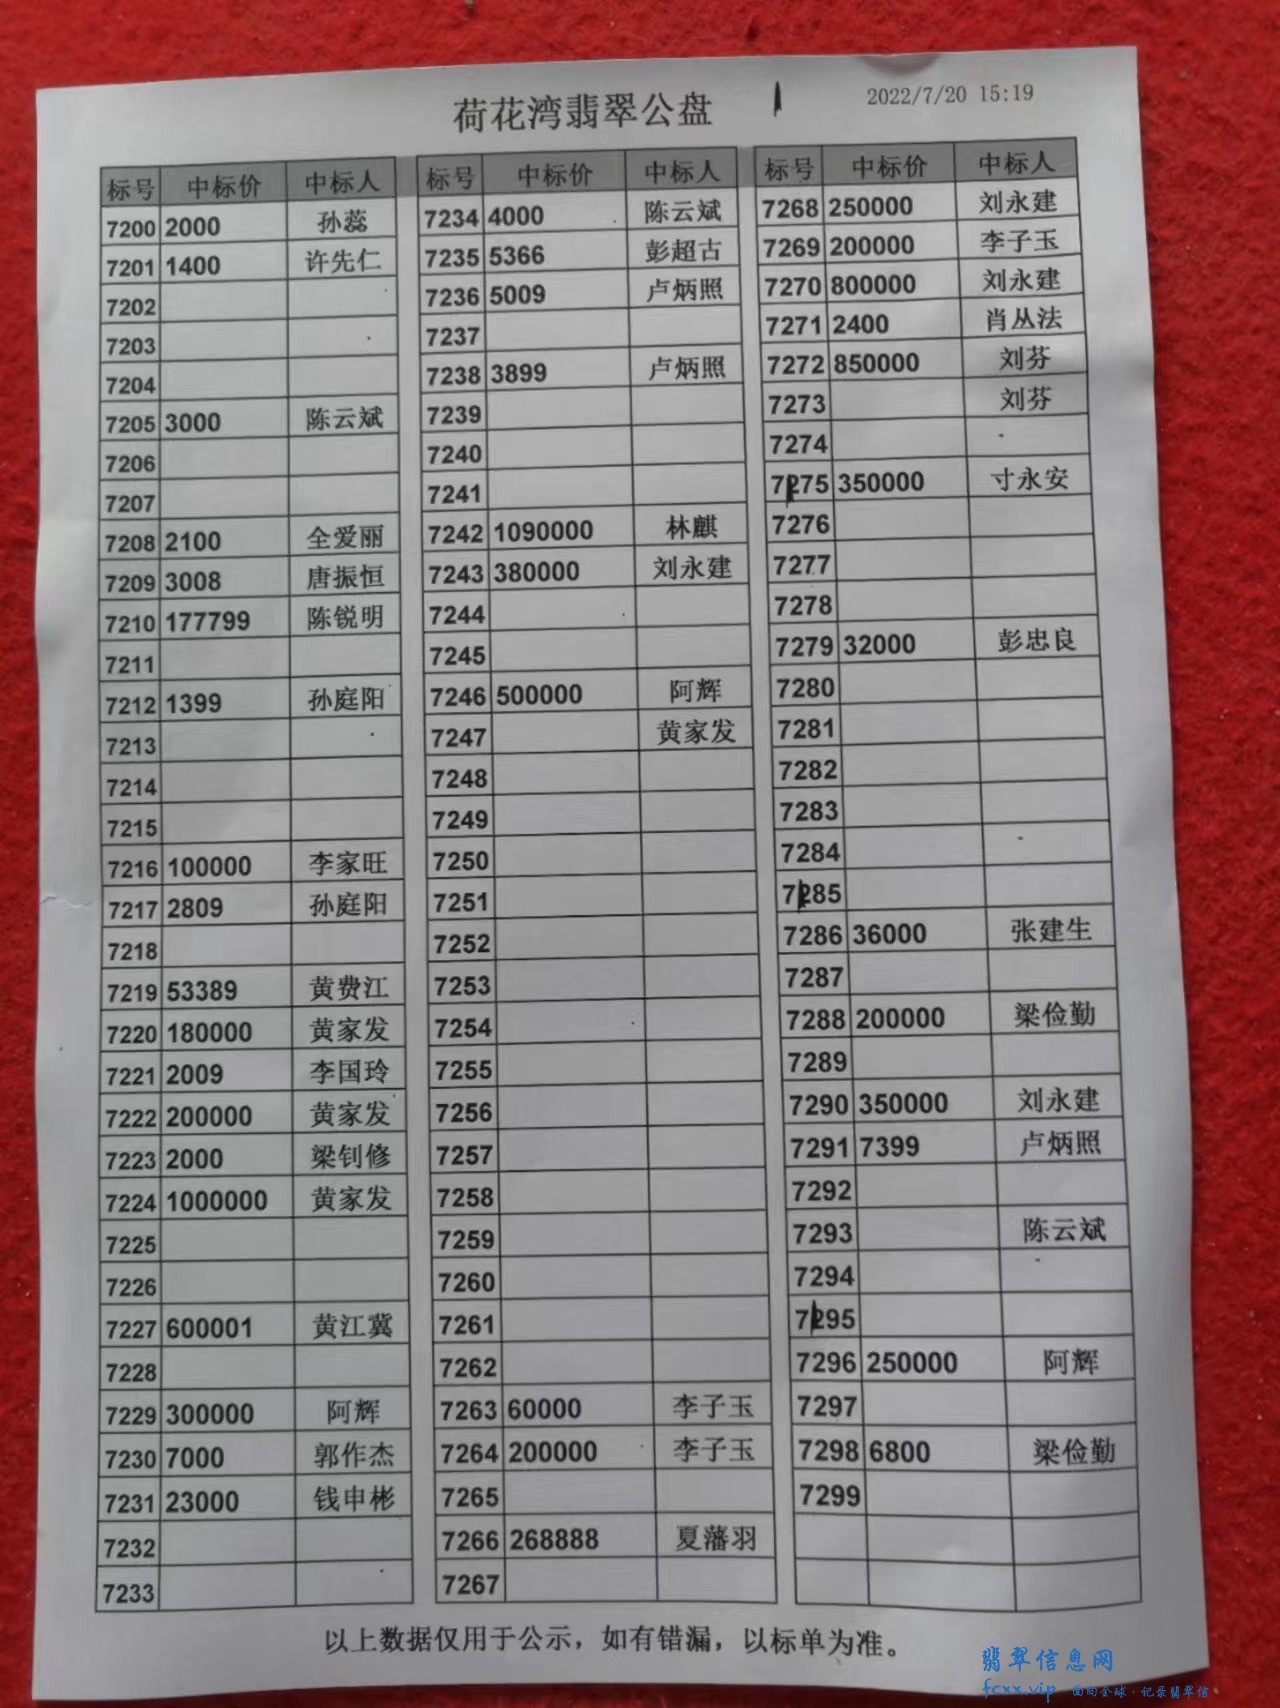 荷花湾翡翠公盘
2022/7/20 15:19
标号 中标价 中标人 标号 中标价 中标人 标号 中标价 中标人
7200 2000 孙蕊 7234 4000 陈云斌 7268 250000 刘永建
7201 1400 许先仁 7235 5366 彭超古 7269 200000 李子玉
7202 7236 5009 卢炳照 7270 800000 刘永建
7203 7237 7271 2400 肖丛法
7204 7238 3899 卢炳照 7272 850000 刘芬
7205 3000 陈云斌 7239 7273 刘芬
7206 7240 7274
7207 7241 7275 350000 寸永安
7208 2100 全爱丽 7242 1090000 林麒 7276
7209 3008 唐振恒 7243 380000 刘永建 7277
7210 177799 陈锐明 7244 7278
7211 7245 7279 32000 彭忠良
7212 1399 孙庭阳 7246 500000 阿辉 7280
7213 7247 黄家发 7281
7214 7248 7282
7215 7249 7283
7216 100000 李家旺 7250 7284
7217 2809 孙庭阳 7251 7285
7218 7252 7286 36000 张建生
7219 53389 黄费江 7253 7287
7220 180000 黄家发 7254 7288 200000 梁俭勤
7221 2009 李国玲 7255 7289
7222 200000 黄家发 7256 7290 350000 刘永建
7223 2000 梁钊修 7257 7291 7399 卢炳照
7224 1000000 黄家发 7258 7292
7225 7259 7293 陈云斌
7226 7260 7294
7227 600001 黄江冀 7261 7295
7228 7262 7296 250000 阿辉
7229 300000 阿辉 7263 60000 李子玉 7297
7230 7000 郭作杰 7264 200000 李子玉 7298 6800 梁俭勤
7231 23000 钱申彬 7265 7299
7232 7266 268888 夏藩羽
7233 7267
以上数据仅用于公示，如有错漏，以标单为准。
翡翠信息网
fcxx.vip 面向全球·记录翡翠信